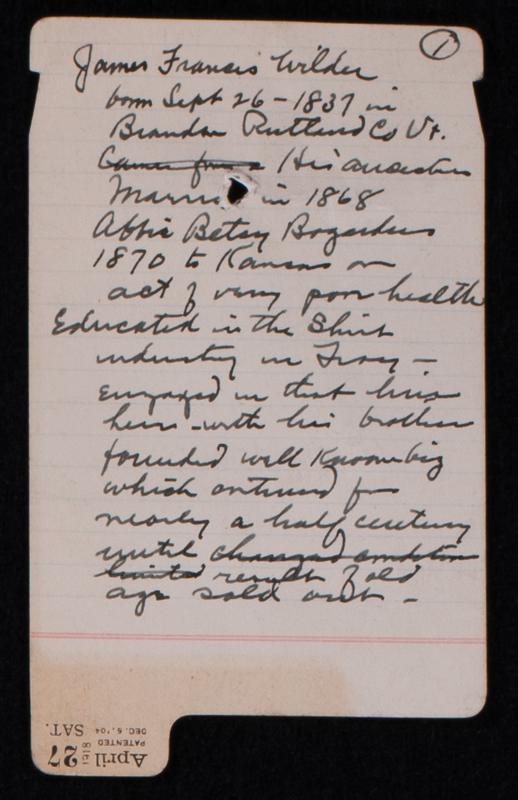 1
James Francis Wilder
born Sept 26 - 1837 in
Brandon Rutland Co Vt.
Came from a His ancestors
Married in 1868
Abbie Betsey Bogardus
1870 to Kansas on
act of very poor health
Educated in the Shirt
industry in Troy -
engaged in that line
here - with his brother
founded well known big
which continued for
nearly a half century
until changed condition
limited result of old
age sold out -
April 27 1918 SAT.
PATENTED DEC. 6, '04